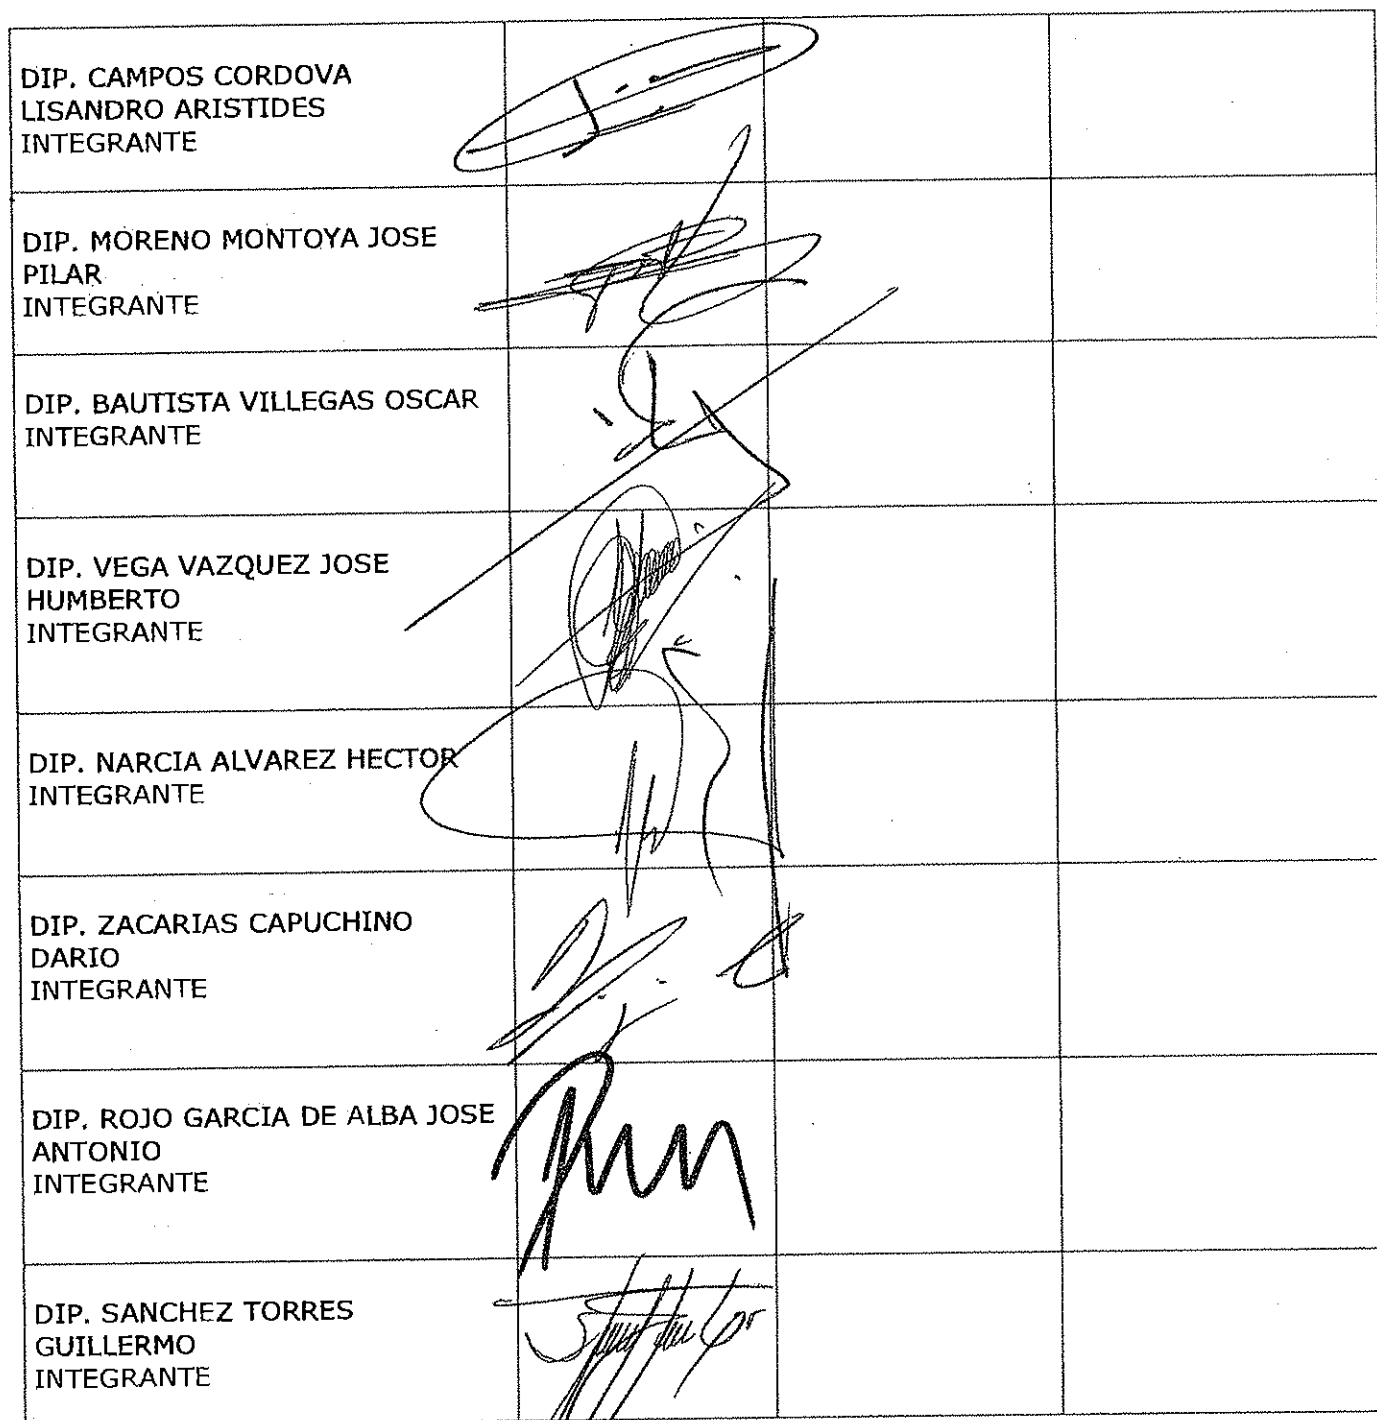 DIP. CAMPOS CORDOVA
LISANDRO ARISTIDES
INTEGRANTE
DIP. MORENO MONTOYA JOSE
PILAR
INTEGRANTE
DIP. BAUTISTA VILLEGAS OSCAR
INTEGRANTE
DIP. VEGA VAZQUEZ JOSE
HUMBERTO
INTEGRANTE
DIP. NARCIA ALVAREZ HECTOR
INTEGRANTE
DIP. ZACARIAS CAPUCHINO
DARIO
INTEGRANTE
DIP. ROJO GARCIA DE ALBA JOSE
ANTONIO
INTEGRANTE
DIP. SANCHEZ TORRES
GUILLERMO
INTEGRANTE